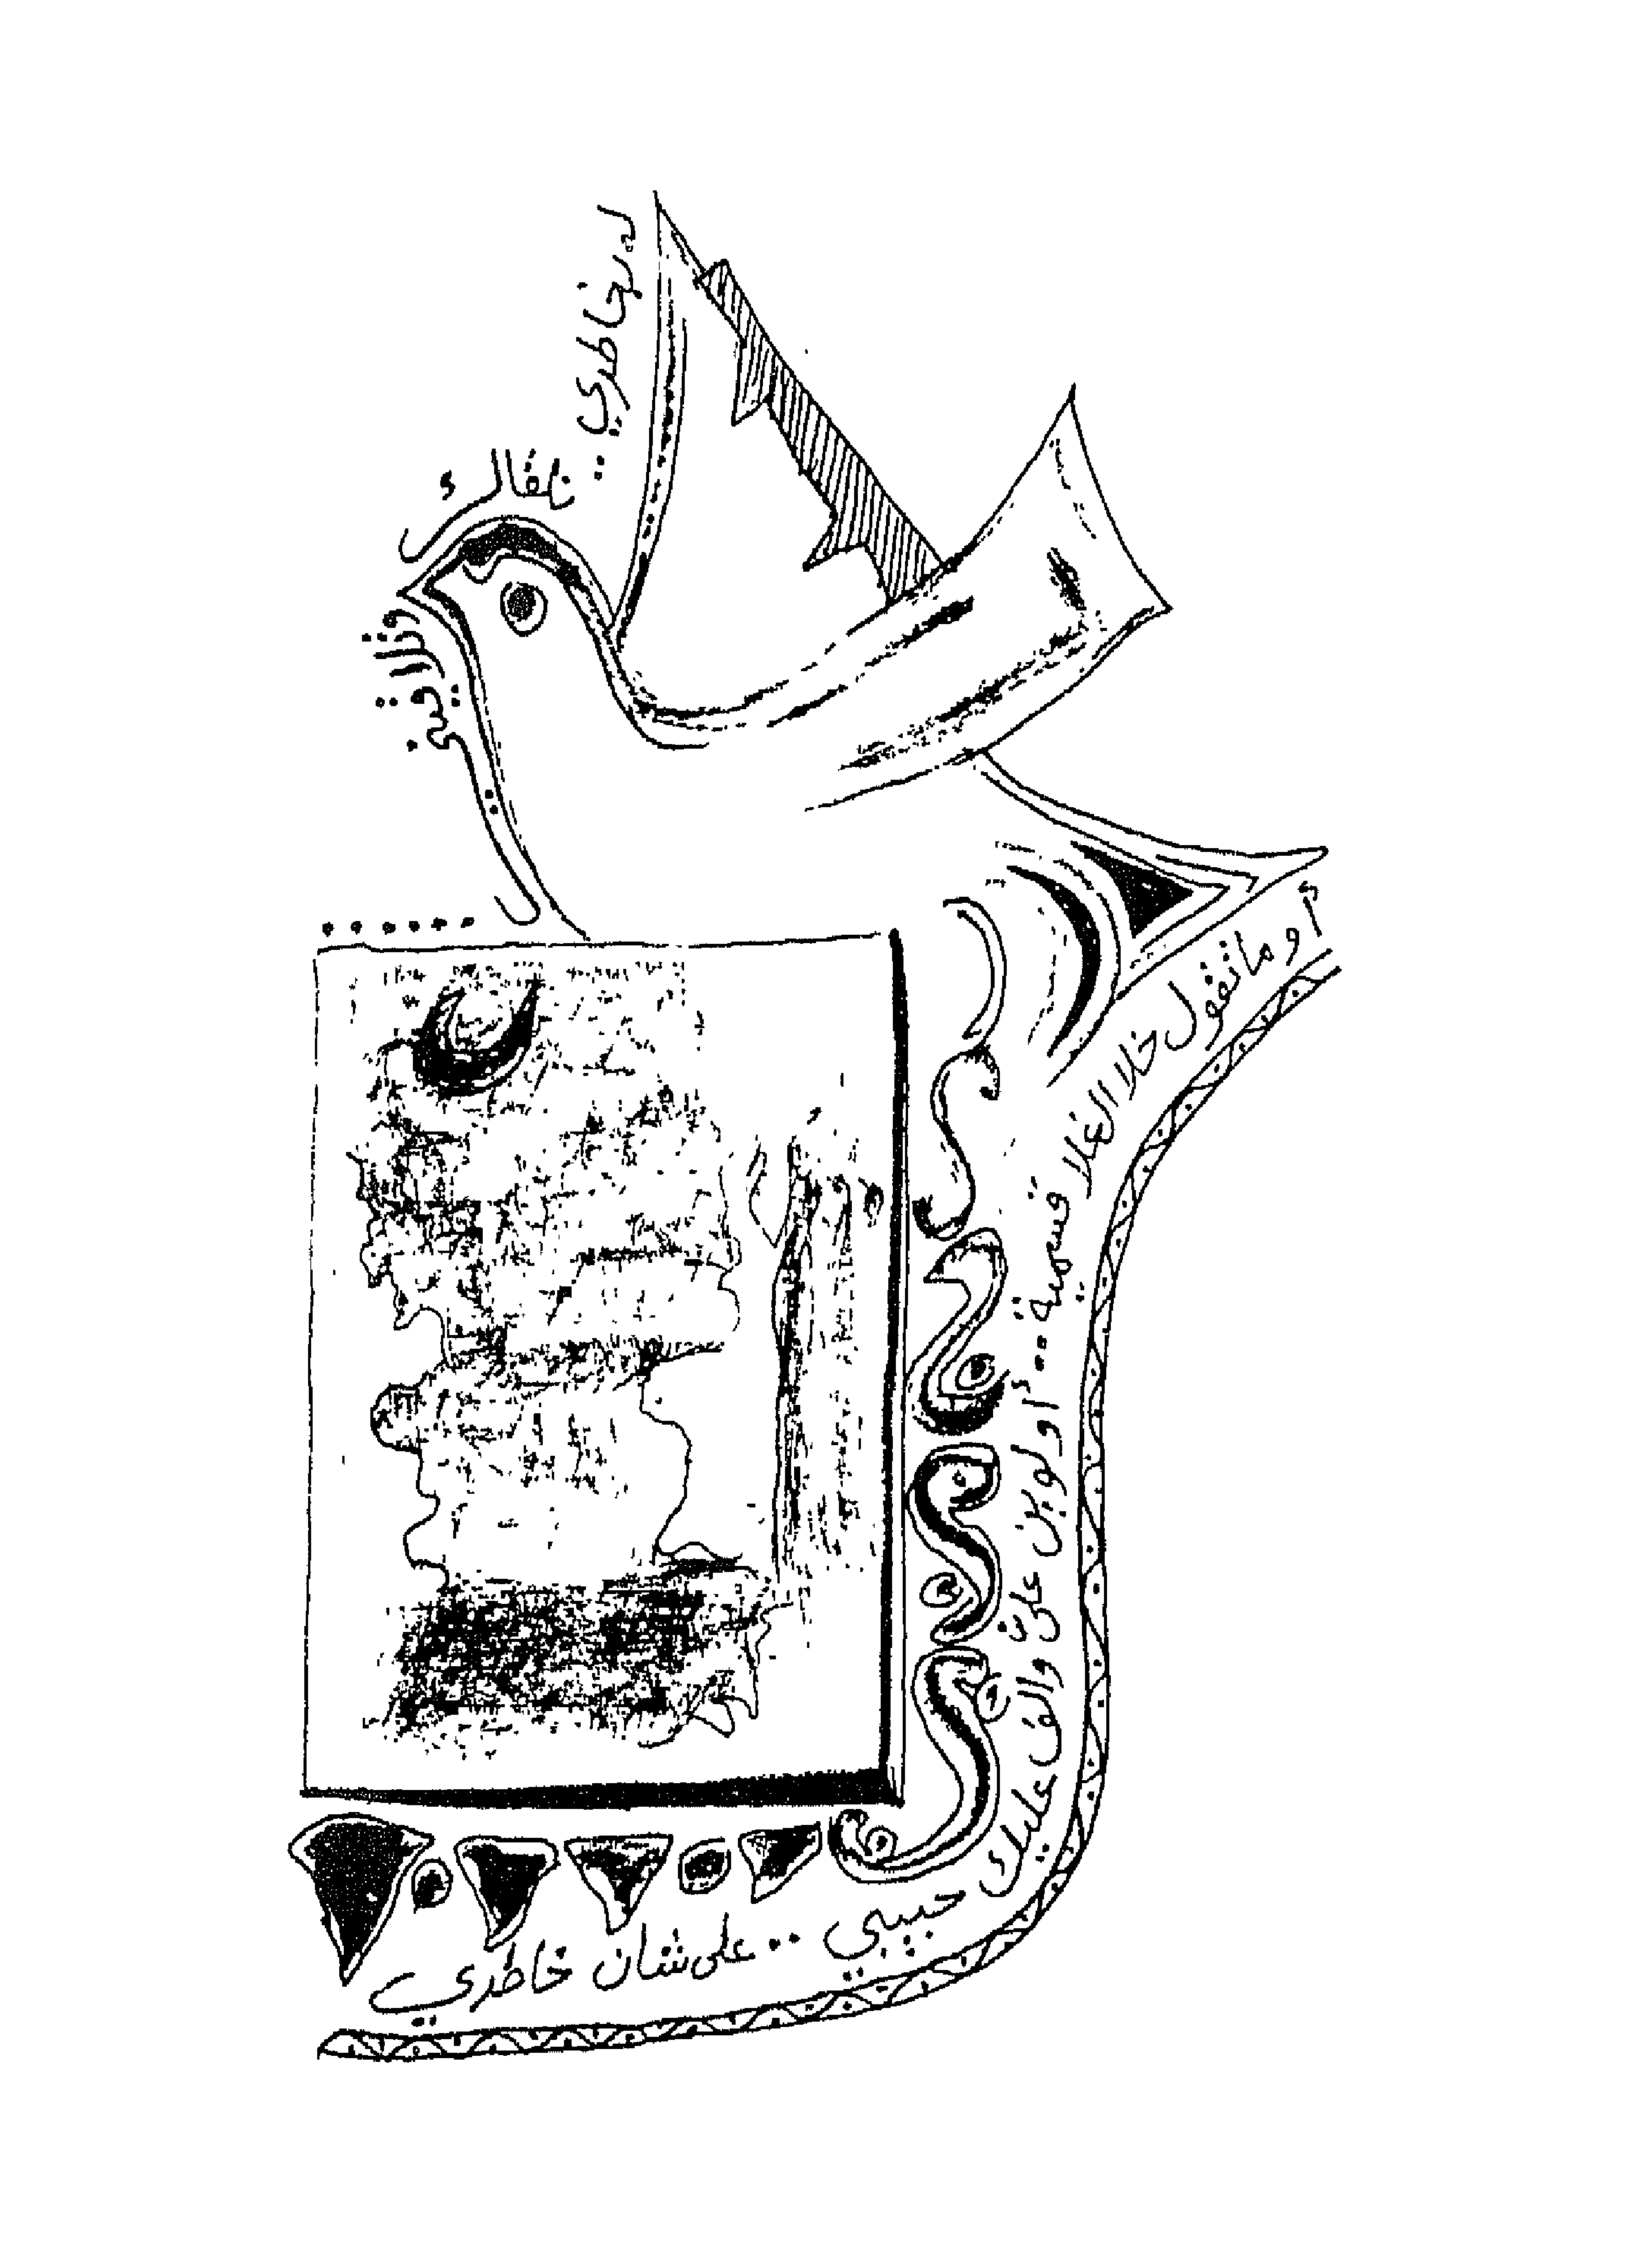 خاطري ..
وتلاقيني ..
......
أو ماتقول خلا الغلا قسمية .. أو لوين عليّ والف عليك حبيبي .. على شان خاطري